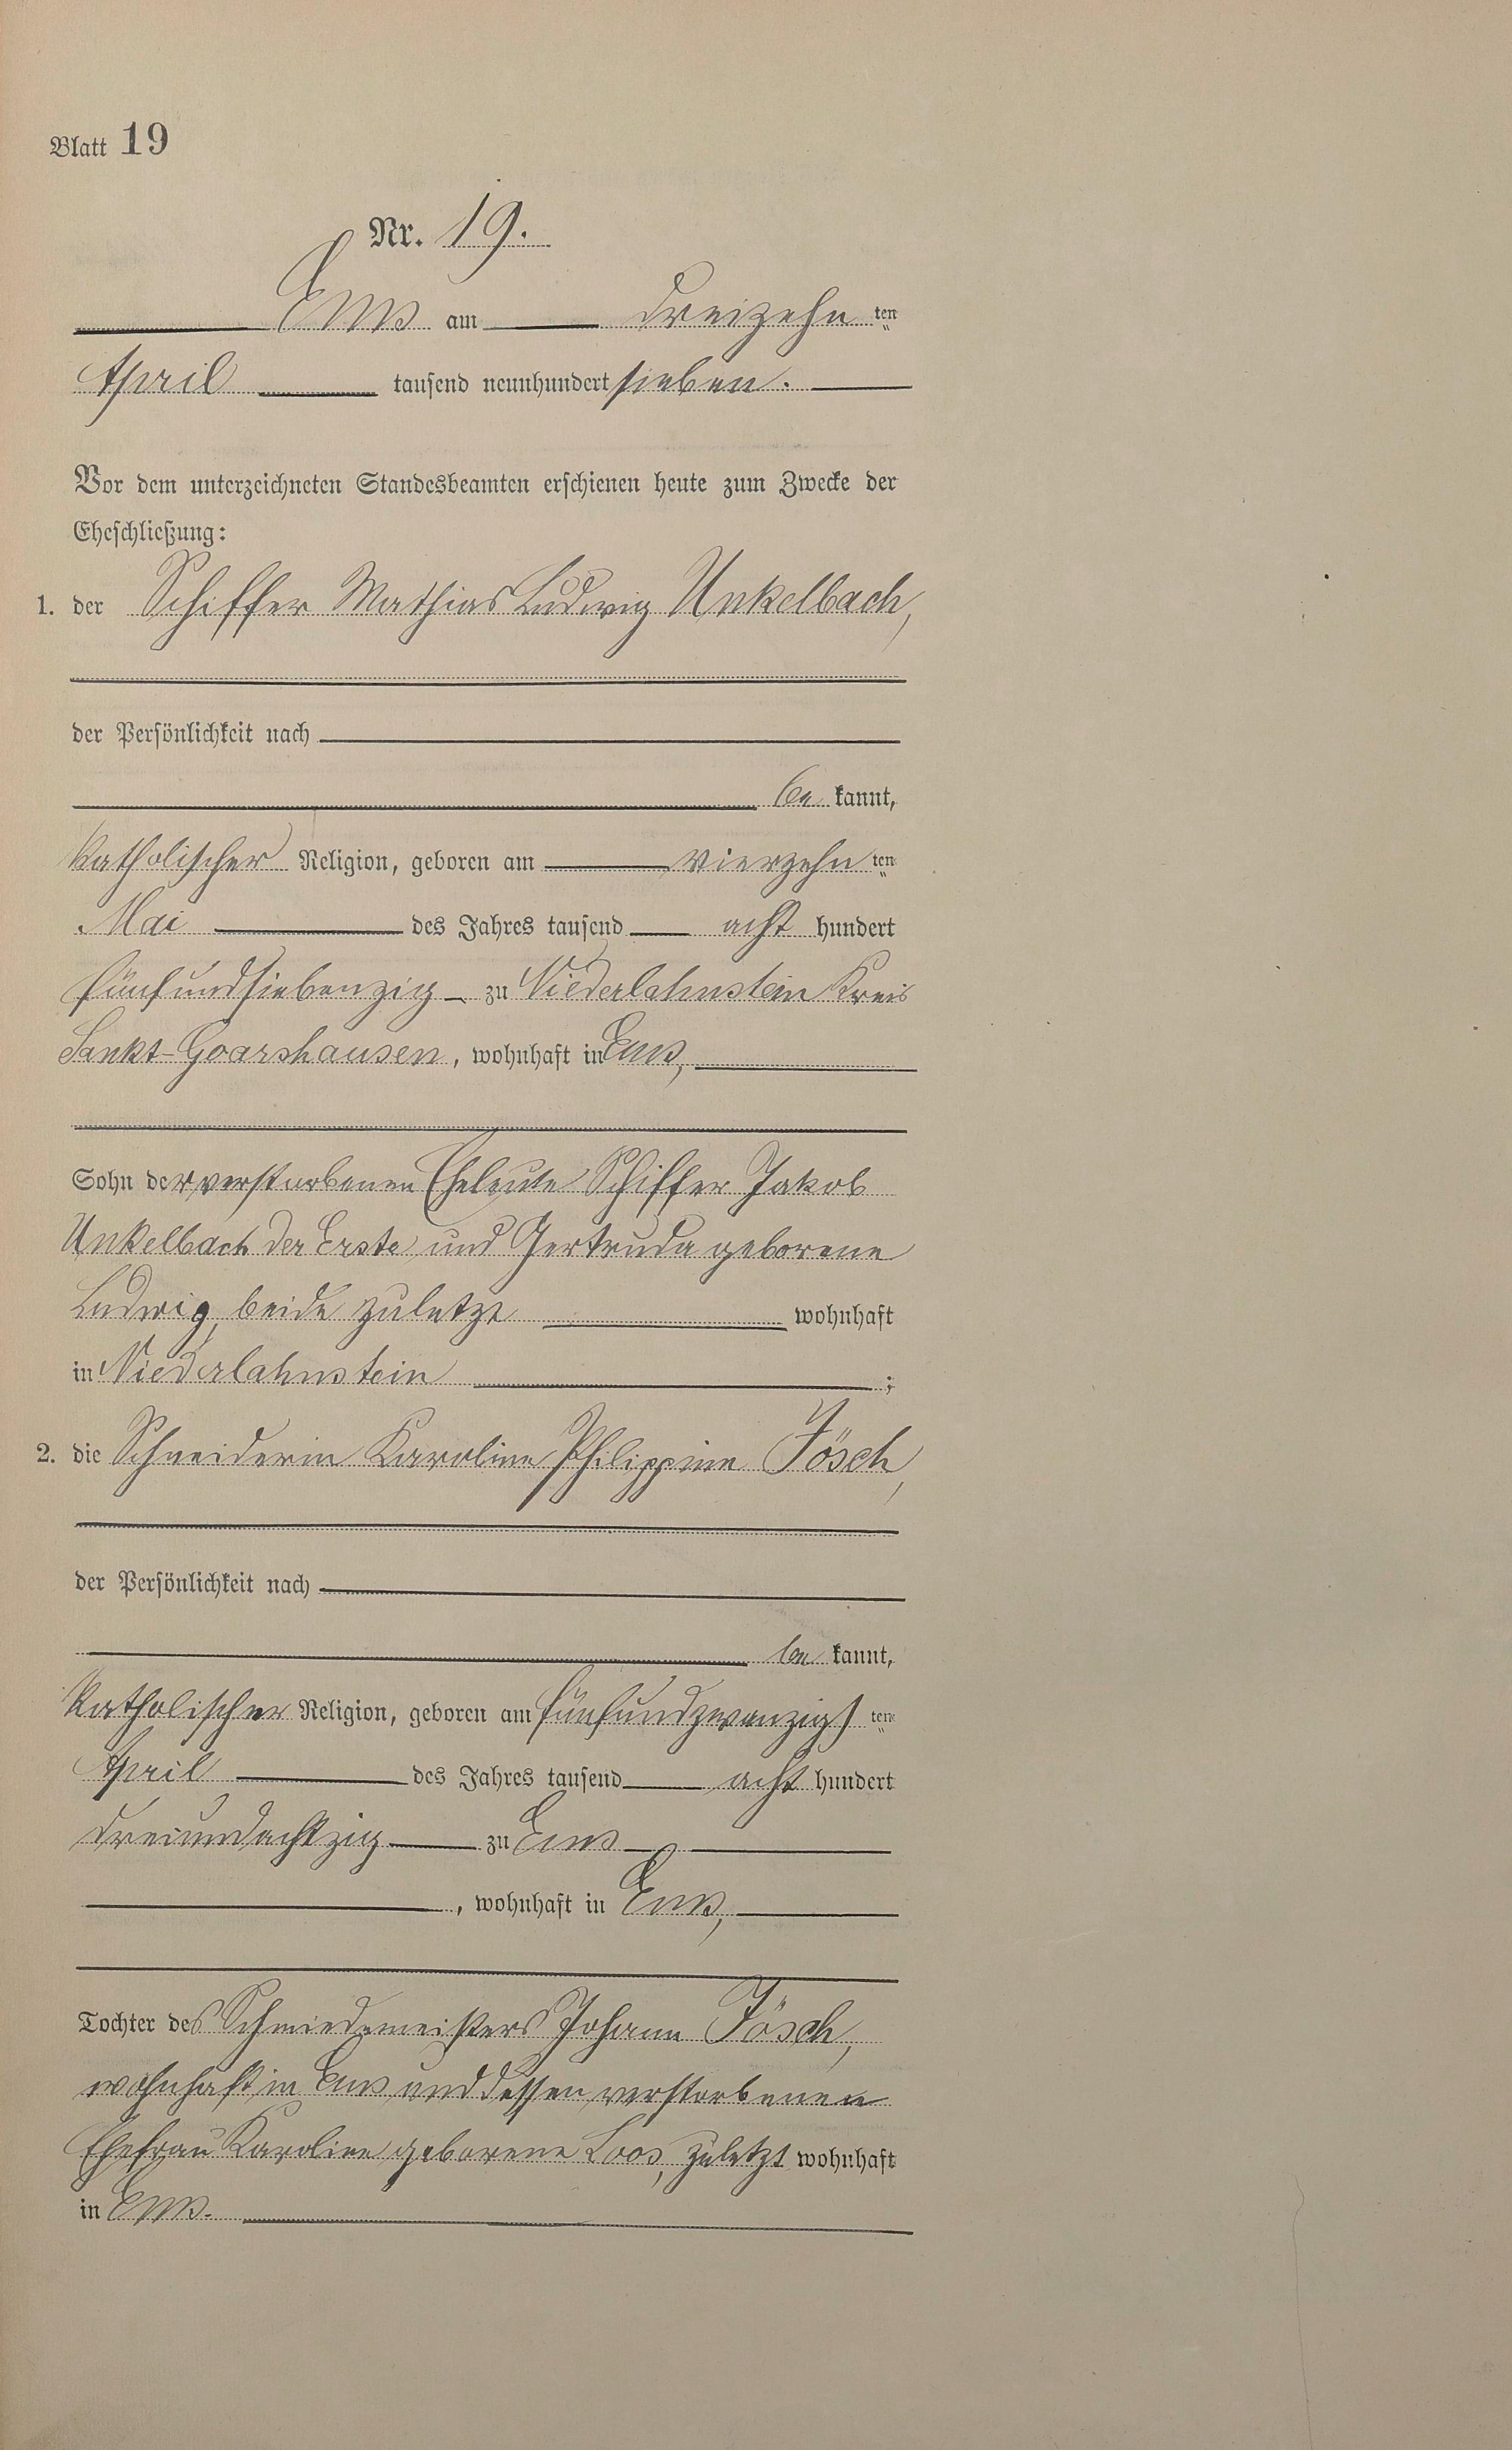 Blatt 19
Nr. 19.
Ems am dreizehn ten
April tausend neunhundert sieben.
Vor dem unterzeichneten Standesbeamten erschienen heute zum Zwecke der
Eheschließung:
1. der Schiffer Mathias Ludwig Unkelbach,
der Persönlichkeit nach
be kannt,
katholischer Religion, geboren am vierzehn ten
Mai des Jahres tausend acht hundert
fünfundsiebenzig zu Niederlahnstein Kreis
Sankt-Goarshausen, wohnhaft in Ems,
Sohn der verstorbenen Eheleute Schiffer Jakob
Unkelbach der Erste und Gertruda geborene
Ludwig, beide zuletzt wohnhaft
in Niederlahnstein ;
2. die Schneiderin Karoline Philippine Jösch,
der Persönlichkeit nach
be kannt,
katholischer Religion, geboren am fünfundzwanzig ten
April des Jahres tausend acht hundert
dreiundachtzig zu Ems
, wohnhaft in Ems,
Tochter des Schmiedemeisters Johann Jösch,
wohnhaft in Ems und dessen verstorbenen
Ehefrau Karoline geborene Loos, zuletzt wohnhaft
in Ems.